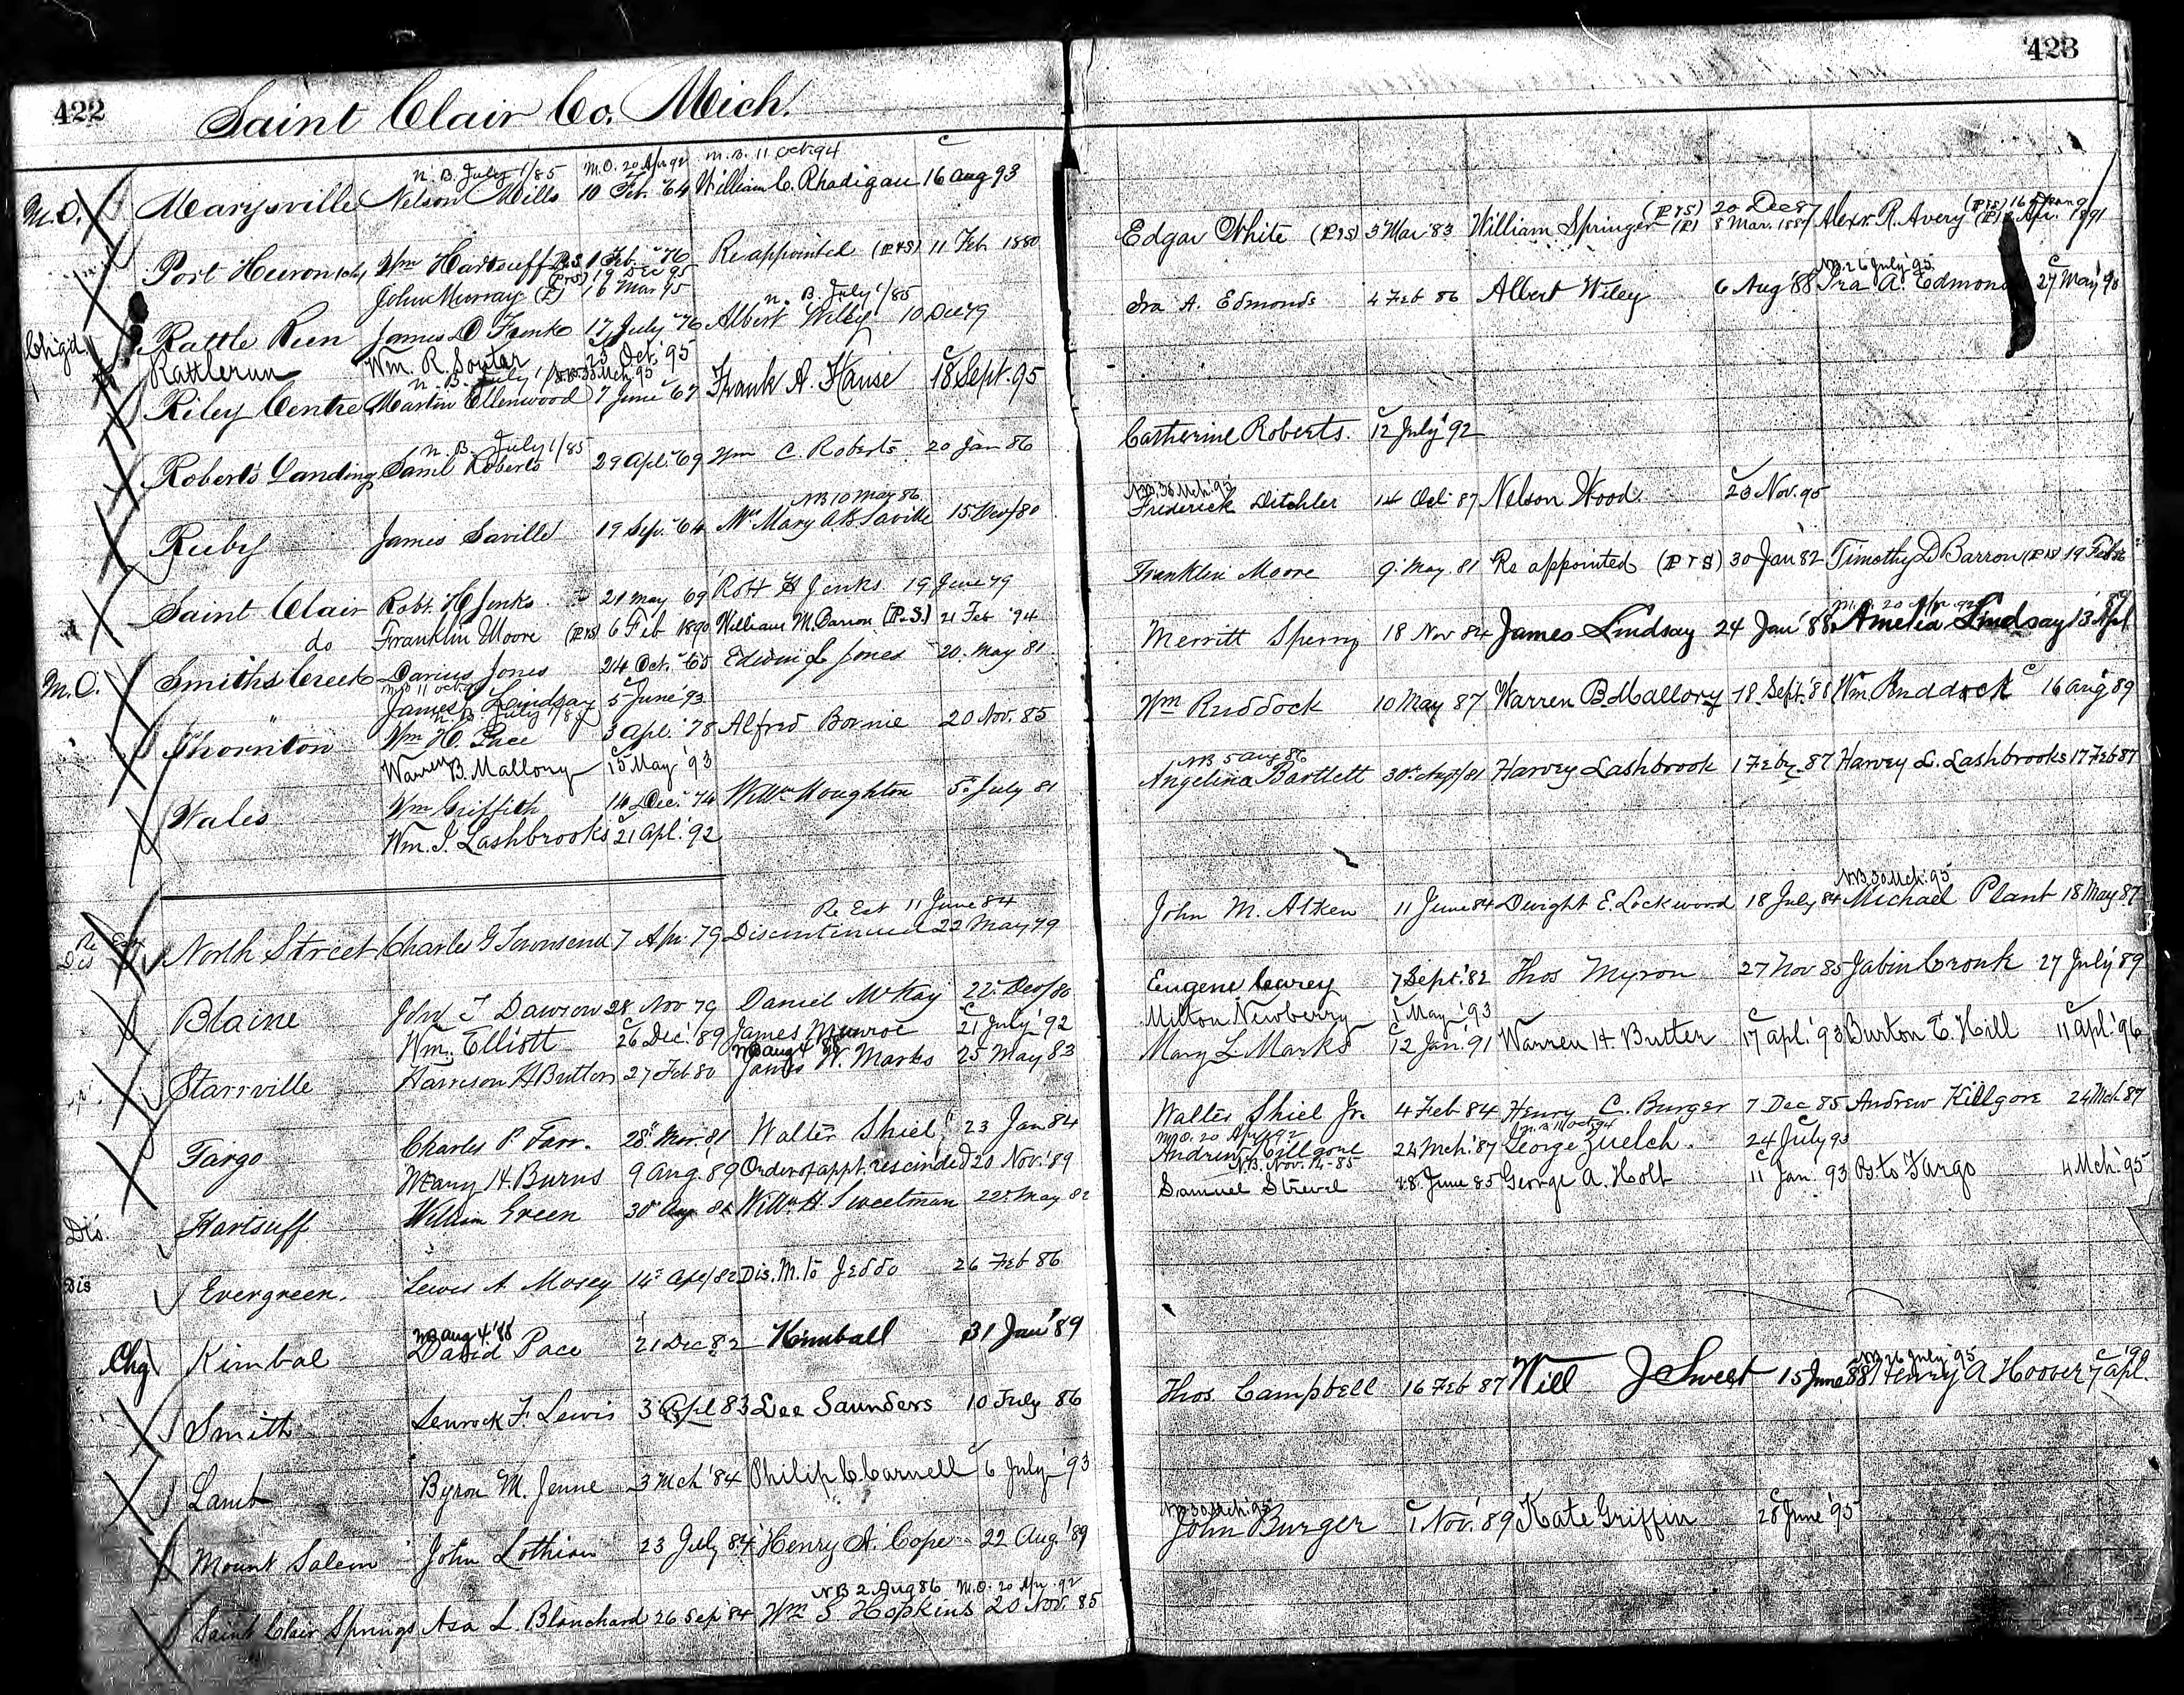 422
Saint Clair Co. Mich.
n. B. July 1/85 M.O. 20 Apr 92 M.B. 11 Oct 94
M.O. Marysville Nelson Mills 10 Feb. '64 William C. Rhadigan 16 Aug 93
Port Huron Wm Hartsuff P&S 1 Feb. '76 Reappointed (P&S) 11 Feb 1880
(P&S) 19 Dec 95
John Murray (P) 16 Mar 95 n. B. July 1/85
Rattle Run James D Fenko 17 July '76 Albert Wiley 10 Dec 79
Chgd. Rattlerun Wm. R. Souter 25 Oct. '95
n. B. July 1/85 30 Mch 95
Riley Centre Martin Ellenwood 7 June '67 Frank A. Hause 18 Sept. 95
n. B. July 1/85
Roberts Landing Saml Roberts 29 Apl. '69 Wm C. Roberts 20 Jan 86
NB 10 May 86
Ruby James Saville 19 Sep. '64 Mrs Mary A.B. Saville 15 Nov/80
Saint Clair Robt. H Jenks 21 May 69 Robt H Jenks 19 June 79
do Franklin Moore (P&S) 6 Feb 1890 William M. Barron (P.&S.) 21 Feb '94
M.O. Smiths Creek Darius Jones 24 Oct. '65 Edwin L Jones 20 May 81
M.O. 11 Oct
James Lindsay 5 June '93
n. B. July 1/85
Thornton Wm H. Pace 3 Apl. '78 Alfred Bornie 20 Nov. 85
Warren B. Mallory 15 May '93
Wales Wm Griffith 14 Dec. '74 Willm Houghton 5 July 81
Wm. I. Lashbrooks 21 Apl. '92
Re Est 11 June 84
Re Est
Dis North Street Charles G Townsend 7 Apr. 79 Discontinued 22 May 79
Blaine John T Dawson 28 Nov 79 Daniel McKay 22 Dec/80
Wm. Elliott 26 Dec. '89 James Munroe 21 July '92
NB Aug 4 '88
Starrville Harrison H Butten 27 Feb 80 James W. Marks 25 May 83
Fargo Charles P. Farr. 28 Mar. 81 Walter Shiel 23 Jan 84
Mary H. Burns 9 Aug. '89 Order of appt. rescinded 20 Nov. '89
Dis. Hartsuff William Green 30 Aug 81 Willm H. Sweetman 22 May 82
Dis Evergreen. Lewis A Mosey 14 Apl/82 Dis. M. to Jeddo 26 Feb 86
NB Aug 4 '88
Chg Kimbal David Pace 21 Dec 82 Kimball 31 Jan '89
Smith Lenrock F. Lewis 3 Apl 83 Lee Saunders 10 July 86
Lamb Byron M. Jenne 3 Mch '84 Philip C Carnell 6 July '93
Mount Salem John Lothian 23 July 84 Henry A. Cope 22 Aug. '89
NB 2 Aug 86 M.O. 20 Apr. 92
Saint Clair Springs Asa L. Blanchard 26 Sep 84 Wm S Hopkins 20 Nov. 85
423
(P&S) 20 Dec 87 (P&S) 16
Edgar White (P&S) 3 Mar 83 William Springer (P) 8 Mar. 1887 Alexr. R. Avery (P) Apr. 1891
NB. 26 July '95
Ira A. Edmonds 4 Feb 86 Albert Wiley 6 Aug '88 Ira A. Edmonds 27 May '90
Catherine Roberts. 12 July '92
NB. 30 Mch. 95
Frederick Ditchler 14 Oct 87 Nelson Wood. 20 Nov. 95
Franklin Moore 9 May 81 Re appointed (P&S) 30 Jan '82 Timothy D Barron (P&S) 19 Feb
M.O. 20 Apr 92
Merritt Sperry 18 Nov 84 James Lindsay 24 Jan '88 Amelia Lindsay 13 Apl '89
Wm Ruddock 10 May 87 Warren B. Mallory 18 Sept. '88 Wm Ruddock 16 Aug '89
NB 5 Aug 86
Angelina Bartlett 30 Aug/81 Harvey Lashbrook 1 Feby. 87 Harvey L. Lashbrooks 17 Feb 87
NB 30 Mch. 95
John M. Aitken 11 June 84 Dwight E. Lockwood 18 July 84 Michael Plant 18 May 87
Eugene Carey 7 Sept. '82 Thos Myron 27 Nov 85 Jabin Cronk 27 July '89
Milton Newberry 1 May '93
Mary L. Marks 12 Jan. '91 Warren H. Butter 17 Apl. '93 Burton E. Hill 11 Apl. '96
Walter Shiel Jr. 4 Feb 84 Henry C. Burger 7 Dec 85 Andrew Killgore 24 Mch 87
M.O. 20 Apr 92 M.B. 11 Oct 94
Andrew Killgore 24 Mch. '87 George Zuelch. 24 July 93
N.B. Nov. 12 - 85
Samuel Strevel 18 June 85 George A. Holt 11 Jan. '93 P.s to Fargo 4 Mch. '95
NB 26 July '95
Thos. Campbell 16 Feb 87 Will J Sweet 15 June 88 Henry A Hoover 7 Apl. '90
NB 30 Mch. 95
John Burger 1 Nov. '89 Kate Griffin 28 June '95